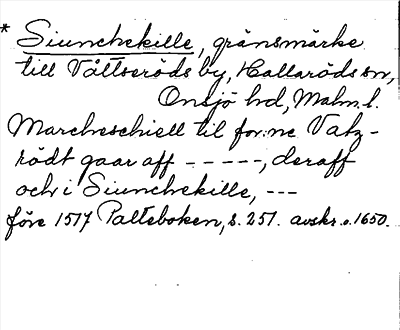 * Siunchekille, gränsmärke
till Våttseröds by, Hallaröds sn,
Onsjö hd, Malm. l.
Marcheschiell til for:ne Vatz-
rödt gaar aff - - - - -, deraff
och i Siunchekille, ---
före 1517 Palteboken, s. 251. avskr. o. 1650.